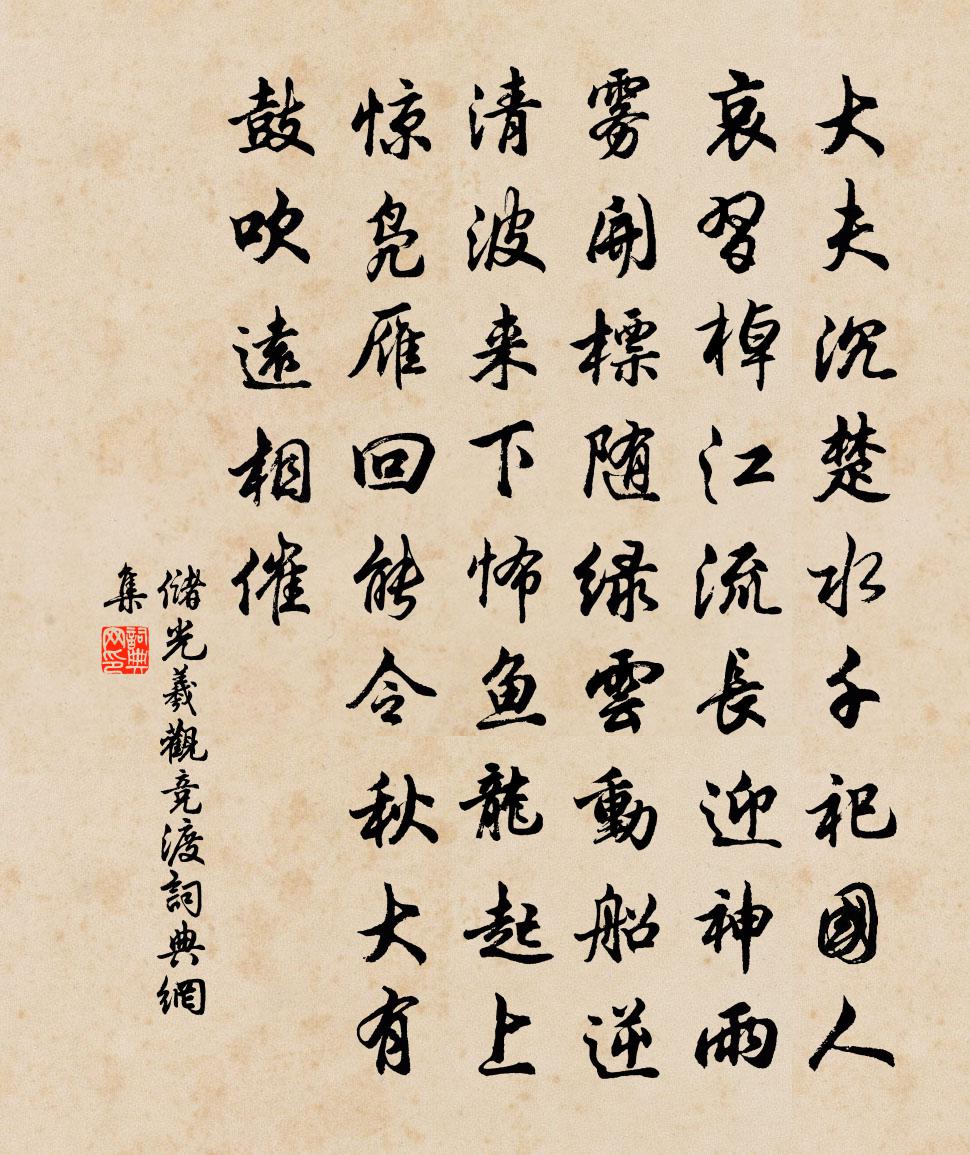 大夫沉楚水千祀國人
哀習棹江流長迎神雨
雾開標随緑雲動船逆
清波来下怖鱼龍起上
惊凫雁回能令秋大有
鼓吹遠相催
儲光羲觀竞渡詞典網
集
詞典網印